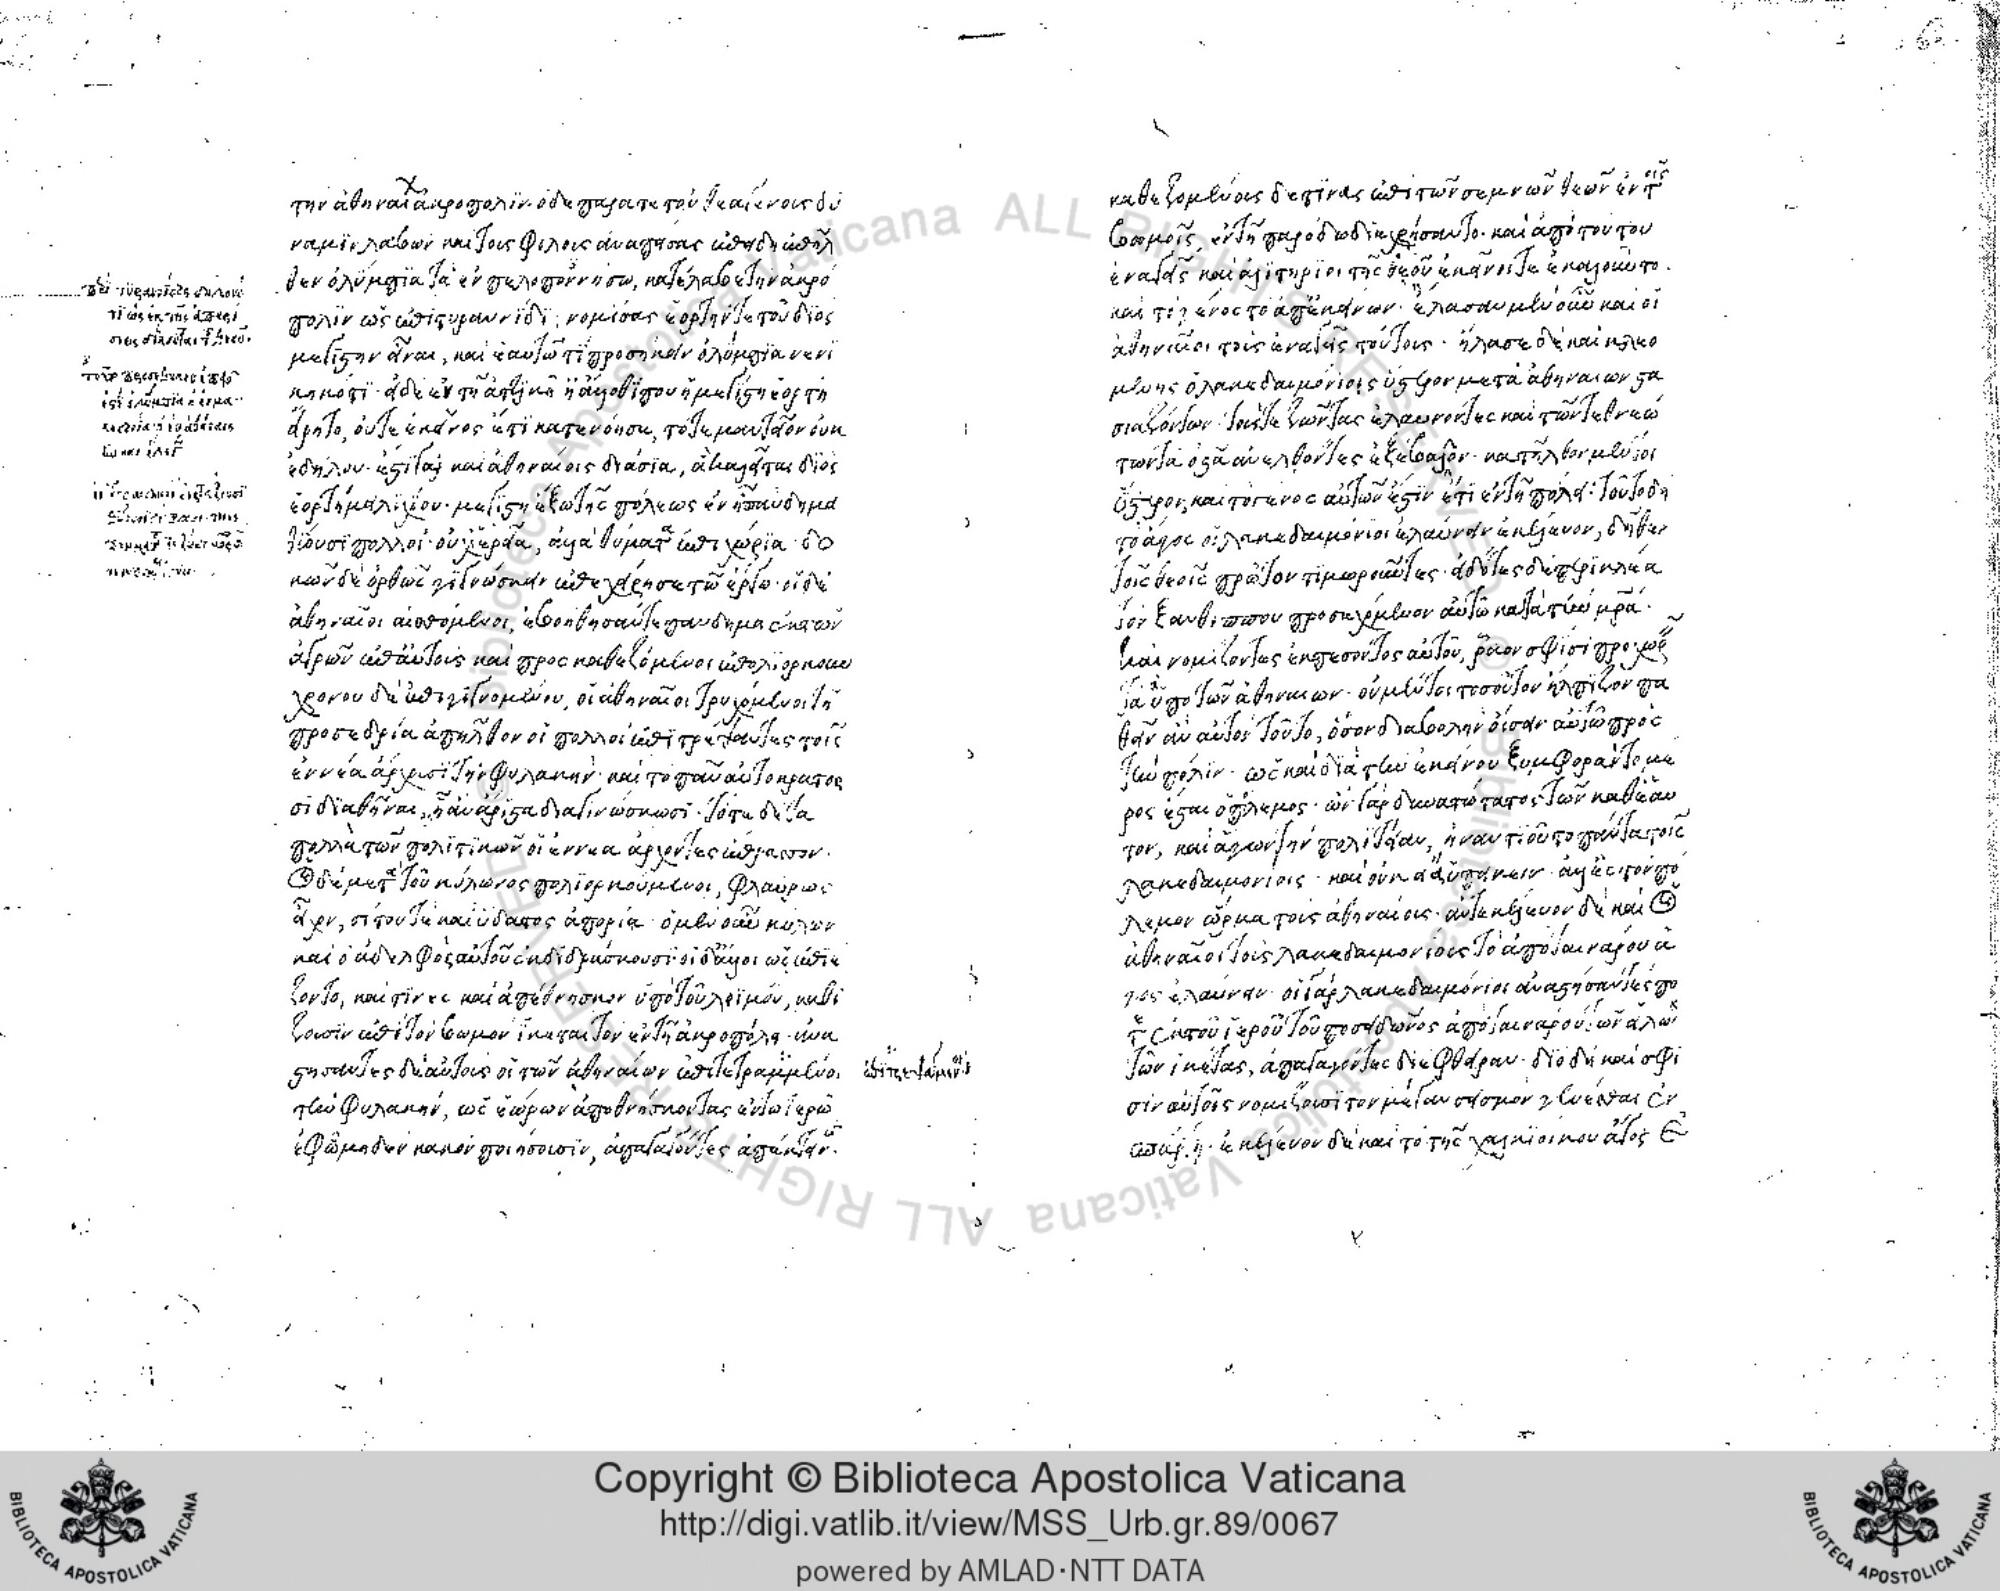 τὴν ἀθηναί ἀκρόπολιν· ὁ δὲ παρά τε τοῦ θεαγένους δύ
ναμιν λαβὼν καὶ τοὺς φίλους ἀναπείσας ἐπειδὴ ἐπῆλ
θεν ὀλύμπια τὰ ἐν πελοποννήσω, κατέλαβε τὴν ἀκρό
πολιν ὡς ἐπὶ τυραννίδι, νομίσας ἑορτήν τε τοῦ διὸς
μεγίστην εἶναι, καὶ ἑαυτῶ τι προσήκειν ὀλύμπια νενι
κηκότι· εἰ δὲ ἐν τῆ ἀττικῆ ἢ ἄλλοθί που ἡ μεγίστη ἑορτὴ
εἴρητο, οὔτε ἐκεῖνος ἔτι κατενόησε, τό τε μαντεῖον οὐκ
ἐδήλου· ἔστι γὰρ καὶ ἀθηναίοις διάσια, ἃ καλεῖται διὸς
ἑορτὴ μειλιχίου μεγίστη ἔξω τῆς πόλεως ἐν ἧ πανδημεὶ
θύουσι πολλοὶ οὐχ ἱερεῖα, ἀλλὰ θύματα ἐπιχώρια· δο
κῶν δὲ ὀρθῶς γιγνώσκειν ἐπεχείρησε τῶ ἔργω· οἱ δὲ
ἀθηναῖοι αἰσθόμενοι, ἐβοήθησάν τε πανδημεὶ ἐκ τῶν
ἀγρῶν ἐπ' αὐτοὺς καὶ προσκαθεζόμενοι ἐπολιόρκουν
χρόνου δὲ ἐπιγιγνομένου, οἱ ἀθηναῖοι τρυχόμενοι τῆ
προσεδρία ἀπῆλθον οἱ πολλοὶ ἐπιτρέψαντες τοῖς
ἐννέα ἄρχουσι τὴν φυλακήν· καὶ τὸ πᾶν αὐτοκράτορ
σι διαθεῖναι, ἧ ἂν ἄριστα διαγινώσκωσι· τότε δὲ τὰ
πολλὰ τῶν πολιτικῶν οἱ ἐννέα ἄρχοντες ἔπρασσον·
οἱ δὲ μετὰ τοῦ κύλωνος πολιορκούμενοι, φλαύρως
εἶχον, σίτου τε καὶ ὕδατος ἀπορία· ὁ μὲν οὖν κύλων
καὶ ὁ ἀδελφὸς αὐτοῦ ἐκδιδράσκουσι· οἱ δ' ἄλλοι ὡς ἐπιέ
ζοντο, καί τινες καὶ ἀπέθνησκον ὑπὸ τοῦ λιμοῦ, καθί
ζουσιν ἐπὶ τὸν βωμὸν ἱκέται τὸν ἐν τῆ ἀκροπόλει· ἀνα
στήσαντες δὲ αὐτοὺς οἱ τῶν ἀθηναίων ἐπιτετραμμένοι
τὴν φυλακήν, ὡς ἑώρων ἀποθνήσκοντας ἐν τῶ ἱερῶ
ἐφ' ὧ μηδὲν κακὸν ποιήσουσιν, ἀπαγαγόντες ἀπέκτειναν·
καθεζομένους δέ τινας ἐπὶ τῶν σεμνῶν θεῶν ἐν τοῖς
βωμοῖς, ἐν τῆ παρόδω διεχρήσαντο· καὶ ἀπὸ τούτου
ἐναγεῖς καὶ ἀλιτήριοι τῆς θεοῦ ἐκεῖνοί τε ἐκαλοῦντο·
καὶ τὸ γένος τὸ ἀπ' ἐκείνων· ἤλασαν μὲν οὖν καὶ οἱ
ἀθηναῖοι τοὺς ἐναγεῖς τούτους· ἤλασε δὲ καὶ κλεο
μένης ὁ λακεδαιμόνιος ὕστερον μετὰ ἀθηναίων στα
σιαζόντων· τούς τε ζῶντας ἐλαύνοντες καὶ τῶν τεθνεώ
των τὰ ὀστᾶ ἀνελόντες ἐξέβαλον· κατῆλθον μέντοι
ὕστερον, καὶ τὸ γένος αὐτῶν ἐστὶν ἔτι ἐν τῆ πόλει· τοῦτο δὴ
τὸ ἄγος οἱ λακεδαιμόνιοι ἐλαύνειν ἐκέλευον, δῆθεν
τοῖς θεοῖς πρῶτον τιμωροῦντες· εἰδότες δὲ περικλέα
τὸν ξανθίππου προσεχόμενον αὐτῶ κατὰ τὴν μρα·
καὶ νομίζοντες ἐκπεσόντος αὐτοῦ, ῥᾶον σφίσι προχωρ
τὰ ὑπὸ τῶν ἀθηναίων· οὐ μέντοι τοσοῦτον ἤλπιζον πα
θεῖν ἂν αὐτὸν τοῦτο, ὅσον διαβολὴν οἴσειν αὐτῶ πρὸς
τὴν πόλιν· ὡς καὶ διὰ τὴν ἐκείνου ξυμφορὰν τὸ μέ
ρος ἔσται ὁ πόλεμος· ὢν γὰρ δυνατώτατος τῶν καθ' ἑαυ
τόν, καὶ ἄγων τὴν πολιτείαν, ἠναντιοῦτο πάντα τοῖς
λακεδαιμονίοις· καὶ οὐκ εἴα ὑπείκειν· ἀλλ' ἐς τὸν πό
λεμον ὥρμα τοὺς ἀθηναίους· ἀντεκέλευον δὲ καὶ οἱ
ἀθηναῖοι τοὺς λακεδαιμονίους τὸ ἀπὸ ταινάρου ἄ
γος ἐλαύνειν· οἱ γὰρ λακεδαιμόνιοι ἀναστήσαντές πο
τε ἐκ τοῦ ἱεροῦ τοῦ ποσειδῶνος ἀπὸ ταινάρου τῶν εἱλώ
των ἱκέτας, ἀπαγαγόντες διέφθειραν· διὸ δὴ καὶ σφί
σιν αὐτοῖς νομίζουσι τὸν μέγαν σεισμὸν γενέσθαι ἐν
σπάρτη· ἐκέλευον δὲ καὶ τὸ τῆς χαλκιοίκου ἄγος ἐ
Copyright © Biblioteca Apostolica Vaticana
http://digi.vatlib.it/view/MSS_Urb.gr.89/0067
powered by AMLAD·NTT DATA